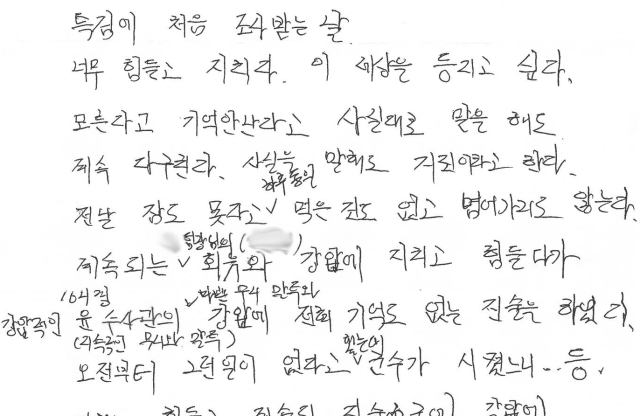 특검에 처음 조사받는 날.
너무 힘들고 지치다. 이 세상을 등지고 싶다.
모른다고 기억안난다고 사실대로 말을 해도
계속 다구친다. 사실을 말해도 거짓이라고 한다.
하루종일
전날 잠도 못자고 ∨ 먹은 것도 없고 넘어가지도 않는다.
팀장님의 ( )
계속되는 ∨ 회유와 강압에 지치고 힘들다가
10시경 무시 말투와
강압적인 윤 수사관의 ∨ 강압에 전혀 기억도 없는 진술은 하였다.
(지속적인 무시와 말투)
있는데
오전부터 그런일이 없다고 ∨ 군수가 시켰느니... 등.
힘들고 강압에